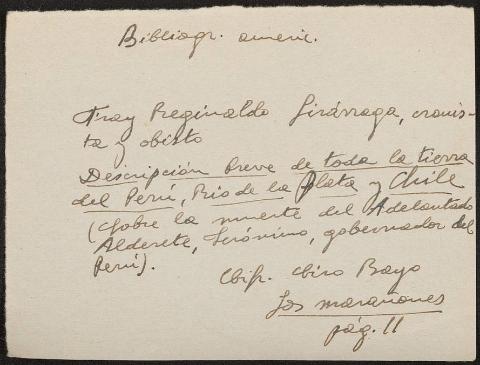 Bibliogr. americ.
Fray Reginaldo Lizárraga, cronis-
ta y obispo
Descripción breve de toda la tierra
del Perú, Rio de la Plata y Chile
(Sobre la muerte del Adelantado
Alderete, Jerónimo, gobernador del
Perú).
Ciro Bayo
Los marañones
pág. 11